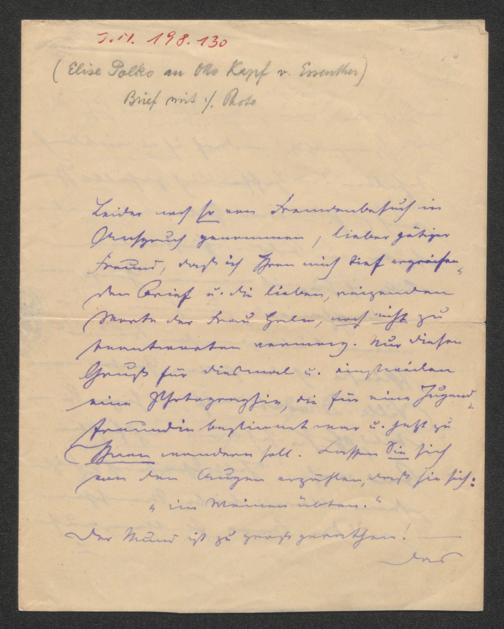 I.N. 198.130
(Elise Polko an Otto Kapf v. Essenther)
Brief mit 1 Photo
Leider noch so von Fremdenbesuch in
Anspruch genommen, lieber gütiger
Freund, daß ich Ihren mich tief ergreifen-
den Brief u. die lieben, reizenden
Worte der Frau Hala, noch nicht zu
beantworten vermag. Nur diesen
Gruß für diesmal u. einstweilen
eine Photographie, die für eine Jugend-
freundin bestimmt war u. jetzt zu
Ihnen wandern soll. Lassen Sie sich
von den Augen erzählen, daß sie sich:
"im Weinen übten."
Der Mund ist zu groß gerathen! —
das